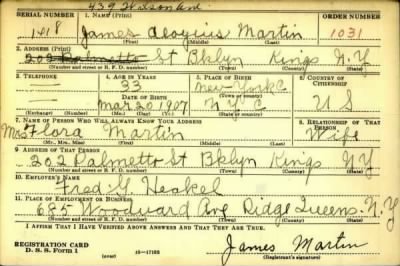 439 Wilson Ave
SERIAL NUMBER 1. NAME (Print) ORDER NUMBER
1418 James Aloysius Martin 1031
(First) (Middle) (Last)
2. ADDRESS (Print)
202 Palmetto St Bklyn Kings N.Y.
(Number and street or R. F. D. number) (Town) (County) (State)
3. TELEPHONE 4. AGE IN YEARS 5. PLACE OF BIRTH 6. COUNTRY OF CITIZENSHIP
— 33 New York C
DATE OF BIRTH (Town or county)
— Mar 20 1907 N Y C U S
(Exchange) (Number) (Mo.) (Day) (Yr.) (State or country)
7. NAME OF PERSON WHO WILL ALWAYS KNOW YOUR ADDRESS 8. RELATIONSHIP OF THAT PERSON
Mrs Flora Martin Wife
(Mr., Mrs., Miss) (First) (Middle) (Last)
9. ADDRESS OF THAT PERSON
202 Palmetto St Bklyn Kings NY
(Number and street or R. F. D. number) (Town) (County) (State)
10. EMPLOYER'S NAME
Fred G. Heckel
11. PLACE OF EMPLOYMENT OR BUSINESS
685 Woodward Ave Ridge Queens N.Y
(Number and street or R. F. D. number) (Town) (County) (State)
I AFFIRM THAT I HAVE VERIFIED ABOVE ANSWERS AND THAT THEY ARE TRUE.
REGISTRATION CARD
D. S. S. Form 1 (over) James Martin
(Registrant's signature)